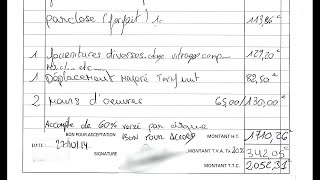 parclose (forfait) 1c 113,86 €
1 fournitures diverses dge vitrage comp 129,20 €
Mach... etc...
1 Déplacement Majoré Tarif nuit 82,50 €
2 mains d'oeuvres 65,00/130,00 €
Accompte de 60% versé par chèque
BON POUR ACCEPTATION BON POUR ACCORD MONTANT H.T. 1710,26 €
DATE 27/10/14 MONTANT T.V.A Tx 20% 342,05 €
SIGNATURE MONTANT T.T.C. 2052,31 €